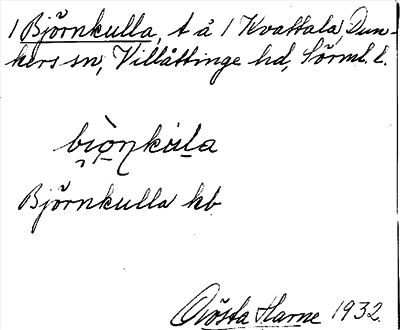 1 Björnkulla, t å 1 Kvattala, Dun-
kers sn, Villåttinge hd, Sörml. l.
Björnkulla kb
Gösta Harne 1932.